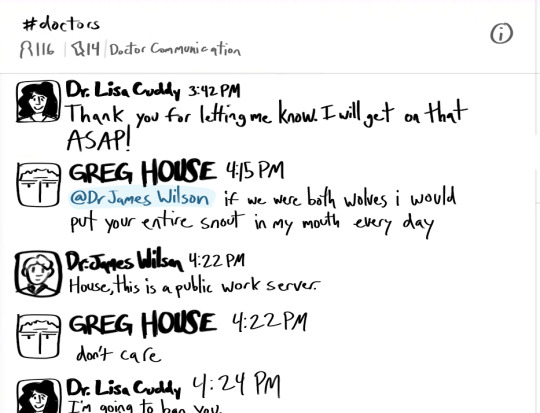 #doctors
116 | 14 | Doctor Communication
Dr. Lisa Cuddy 3:42 PM
Thank you for letting me know. I will get on that
ASAP!
GREG HOUSE 4:15 PM
@Dr James Wilson if we were both wolves i would
put your entire snout in my mouth every day
Dr. James Wilson 4:22 PM
House, this is a public work server.
GREG HOUSE 4:22 PM
don't care
Dr. Lisa Cuddy 4:24 PM
I'm going to ban you.